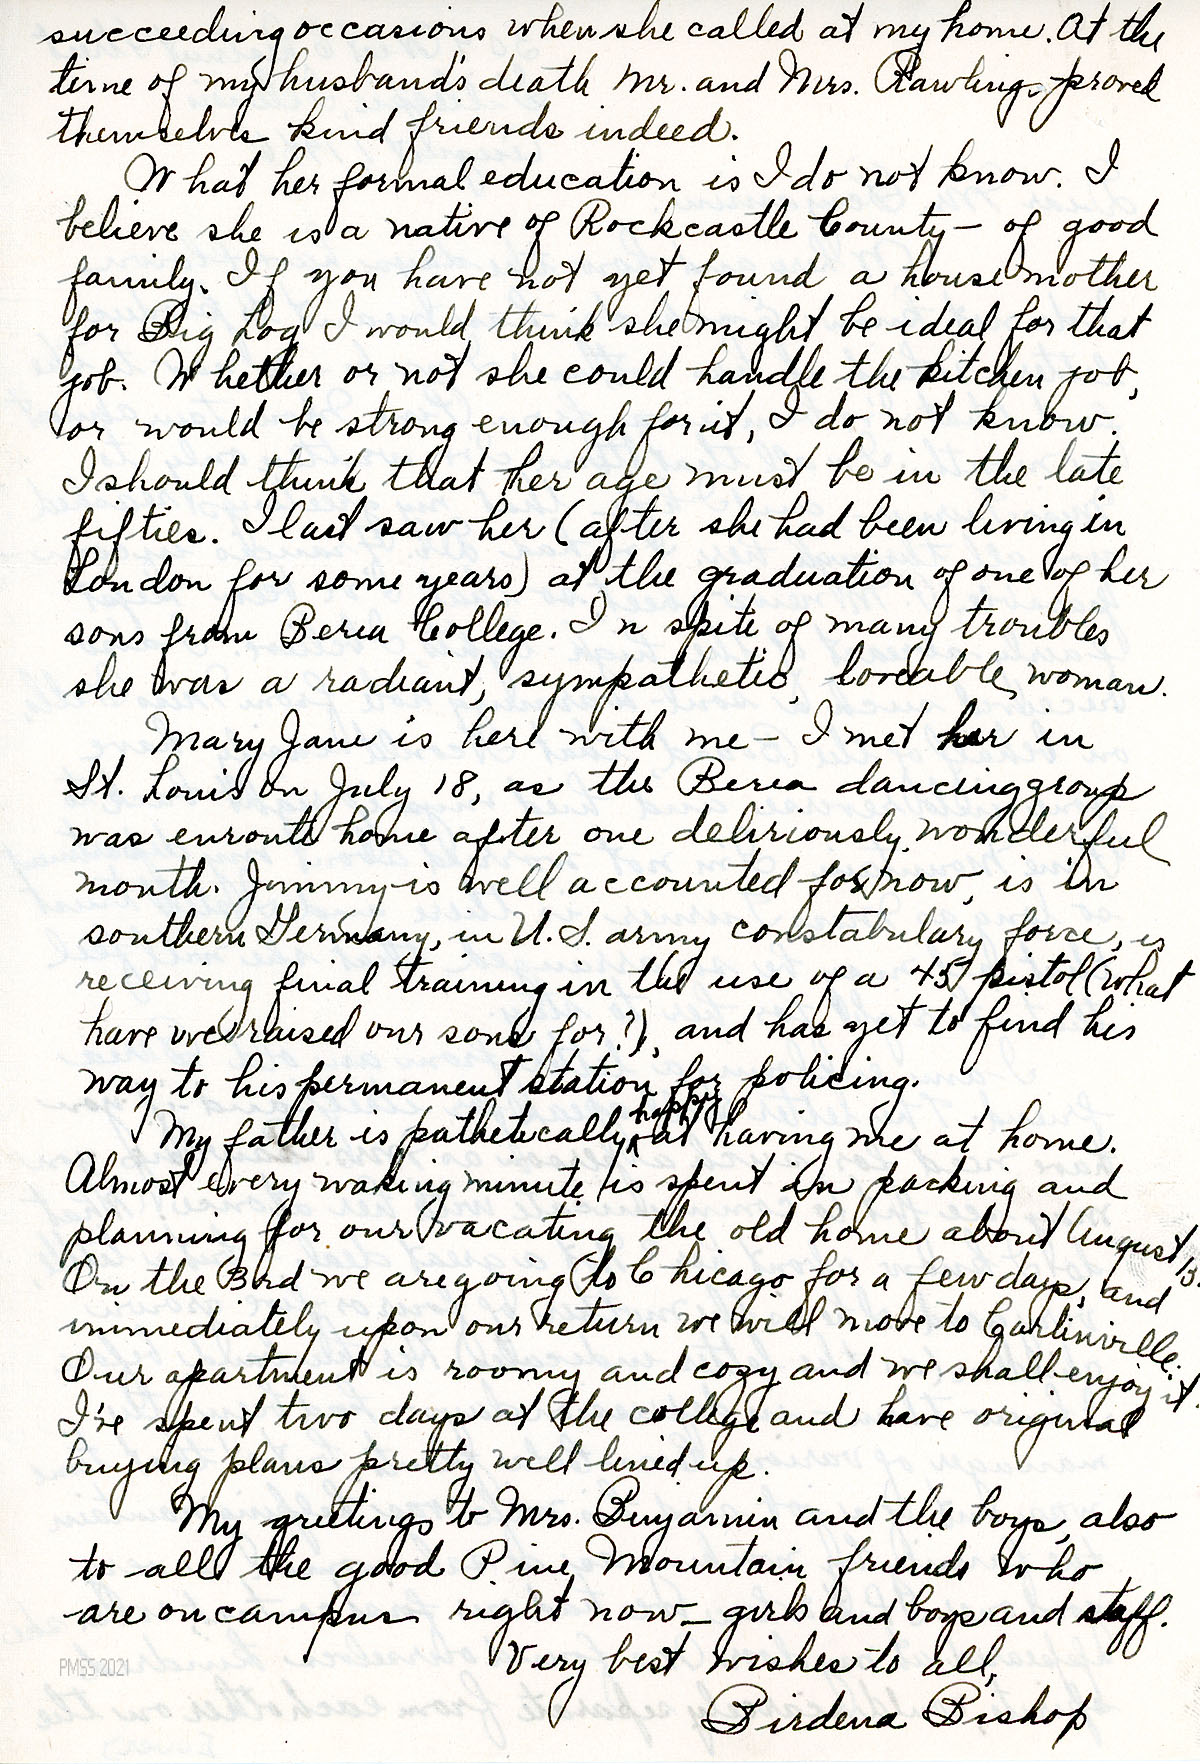 succeeding occasions when she called at my home. At the
time of my husband's death Mr. and Mrs. Rawlings proved
themselves kind friends indeed.
What her formal education is I do not know. I
believe she is a native of Rockcastle County – of good
family. If you have not yet found a house mother
for Big Log I would think she might be ideal for that
job. Whether or not she could handle the kitchen job,
or would be strong enough for it, I do not know.
I should think that her age must be in the late
fifties. I last saw her (after she had been living in
London for some years) at the graduation of one of her
sons from Berea College. In spite of many troubles
she was a radiant, sympathetic, loveable woman.
Mary Jane is here with me – I met her in
St. Louis on July 18, as the Berea dancing group
was enroute home after one deliriously wonderful
month. Jimmy is well accounted for now, is in
southern Germany, in U.S. army constabulary force, is
receiving final training in the use of a 45 pistol (what
have we raised our sons for?), and has yet to find his
way to his permanent station for policing.
My father is pathetically happy at having me at home.
Almost every waking minute is spent in packing and
planning for our vacating the old home about August 13.
On the 3rd we are going to Chicago for a few days, and
immediately upon our return we will move to Carlinville.
Our apartment is roomy and cozy and we shall enjoy it.
I've spent two days at the college and have original
buying plans pretty well lined up.
My greetings to Mrs. Benjamin and the boys, also
to all the good Pine Mountain friends who
are on campus right now – girls and boys and staff.
Very best wishes to all,
Birdena Bishop
PMSS 2021